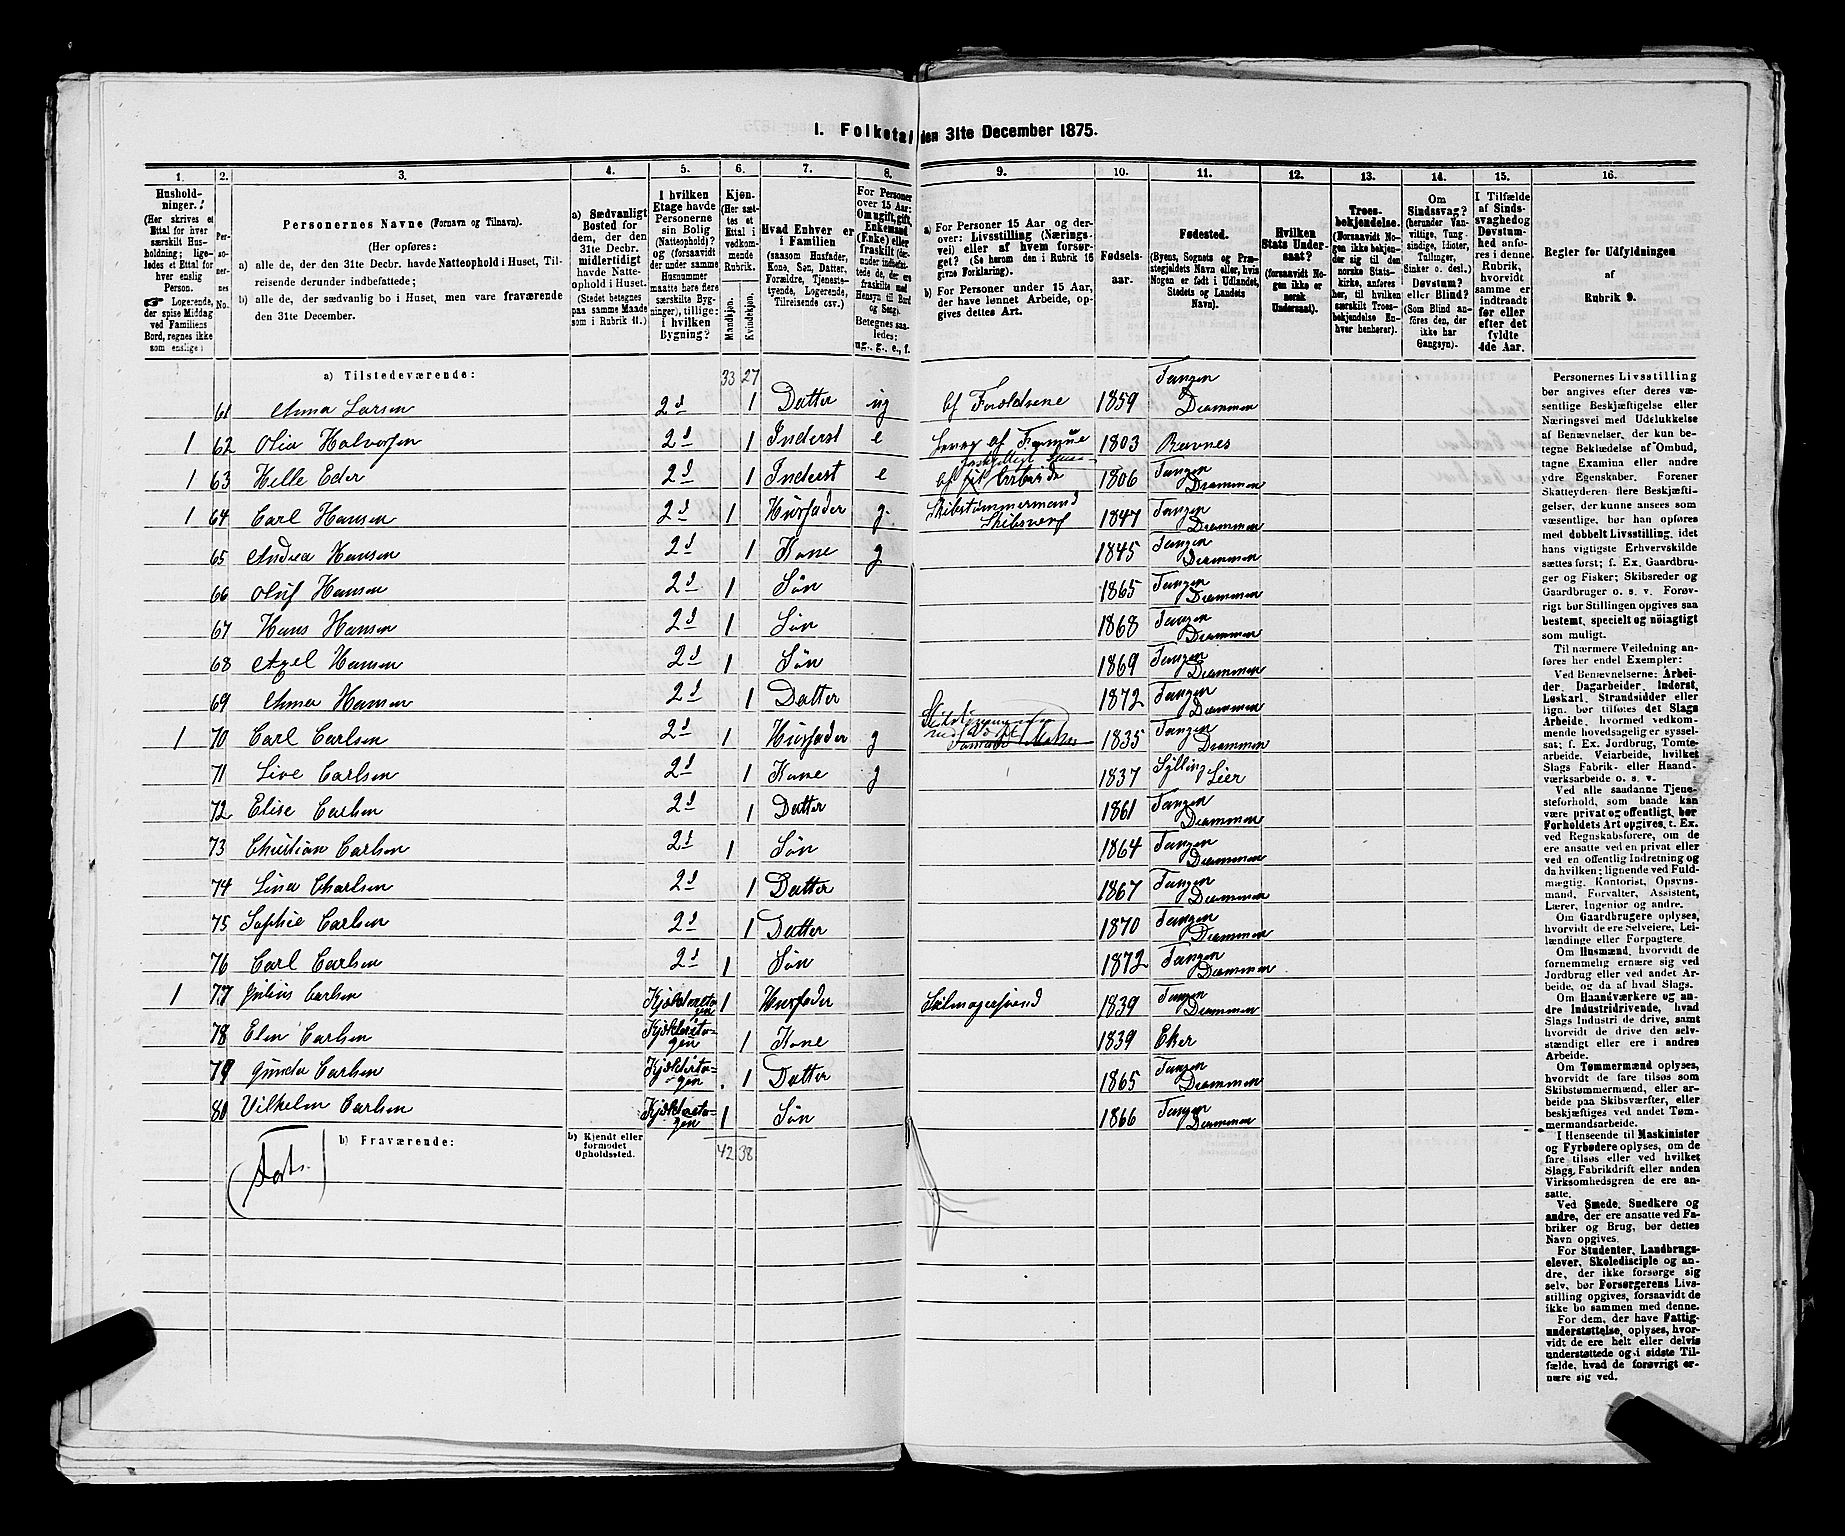 I. Folketal den 31te December 1875.
1. 2. 3. 4. 5. 6. 7. 8. 9. 10. 11. 12. 13. 14. 15. 16.
Hushold-
ninger.
(Her skrives et
Ettal for hver
særskilt Hus-
holdning; lige-
ledes et Ettal for
hver enslig
Person.
☞ Logerende,
der spise Middag
ved Familiens
Bord, regnes ikke
som enslige)
Per-
so-
ner-
nes
No.
Personernes Navne (Fornavn og Tilnavn).
(Her opføres:
a) alle de, der den 31te Decbr. havde Natteophold i Huset, Til-
reisende derunder indbefattede;
b) alle de, der sædvanlig bo i Huset, men vare fraværende
den 31te December.
a) Sædvanligt
Bosted for
dem, der den
31te Decbr.
midlertidigt
havde Natte-
ophold i Huset.
(Stedet betegnes
paa samme Maade
som i Rubrik 11.)
I hvilken
Etage havde
Personerne
sin Bolig
(Natteophold)?
og (forsaavidt
der under samme
Husnummer
maatte høre flere
særskilte Byg-
ninger), tillige:
i hvilken
Bygning?
Kjøn.
(Her sæt-
tes et
Ettal i
vedkom-
mende
Rubrik.
Mandkjøn.
Kvindekjøn.
Hvad Enhver er
i Familien
(saasom Husfader,
Kone, Søn, Datter,
Forældre, Tjeneste-
tyende, Logerende,
Tilreisende osv.)
For Personer
over 15 Aar:
Om ugift, gift,
Enkemand
(Enke) eller
fraskilt (der-
under indbefat-
tede de, der ere
fraskilte med
Hensyn til Bord
og Seng).
Betegnes saa-
ledes:
ug., g., e., f.
a) For Personer 15 Aar og der-
over: Livsstilling (Nærings-
vei) eller af hvem forsør-
get? (Se herom den i Rubrik 16
givne Forklaring).
b) For Personer under 15 Aar,
der have lønnet Arbeide, op-
gives dettes Art.
Fødsels-
aar.
Fødested.
(Byens, Sognets og Præ-
stegjeldets Navn eller, hvis
Nogen er født i Udlandet,
Stedets og Landets
Navn).
Hvilken
Stats Under-
saat?
(forsaavidt No-
gen ikke er
norsk
Undersaat).
Troes-
bekjendelse.
(Forsaavidt No-
gen ikke beken-
der sig til den
norske Stats-
kirke, anføres
her, til hvilken
særskilt Troes-
bekjendelse En-
hver henhører).
Om
Sindssvag?
(herunder Van-
vittige, Tung-
sindige, Idioter,
Tullinger,
Sinker o. desl.)
Døvstum?
eller Blind?
(Som Blind an-
føres den, der
ikke har
Gangsyn).
I Tilfælde
af Sinds-
svaghed og
Døvstum-
hed anfø-
res i denne
Rubrik,
hvorvidt
samme er
indtraadt
før eller
efter det
fyldte
4de Aar.
Regler for Udfyldningen
af
Rubrik 9.
a) Tilstedeværende: 33 27
61 Anna Larsen 2d 1 Datter ug af Forældrene 1859 Tangen Drammen
1 62 Olia Halvorsen 2d 1 Inderst e af 1803 Ravnes
1 63 Helle Eder 2d 1 Inderst e af Arbeide 1806 Tangen Drammen
1 64 Carl Hansen 2d 1 Husfader g. Skibstømmermand Skibsverf 1847 Tangen Drammen
65 Andrea Hansen 2d 1 Kone g 1845 Tangen Drammen
66 Oluf Hansen 2d 1 Søn 1865 Tangen Drammen
67 Hans Hansen 2d 1 Søn 1868 Tangen Drammen
68 Axel Hansen 2d 1 Søn 1869 Tangen Drammen
69 Anna Hansen 2d 1 Datter 1872 Tangen Drammen
1 70 Carl Carlsen 2d 1 Husfader g 1835 Tangen Drammen
71 Live Carlsen 2d 1 Kone g 1837 Sylling Lier
72 Elise Carlsen 2d 1 Datter 1861 Tangen Drammen
73 Christian Carlsen 2d 1 Søn 1864 Tangen Drammen
74 Lina Charlsen 2d 1 Datter 1867 Tangen Drammen
75 Sophie Carlsen 2d 1 Datter 1870 Tangen Drammen
76 Carl Carlsen 2d 1 Søn 1872 Tangen Drammen
1 77 Julius Carlsen Kjælderetagen 1 Husfader 1839 Tangen Drammen
78 Elen Carlsen Kjælderetagen 1 Kone 1839 Eker
79 Gunda Carlsen Kjælderetagen 1 Datter 1865 Tangen Drammen
80 Vilhelm Carlsen Kjælderetagen 1 Søn 1866 Tangen Drammen
b) Fraværende: b) Kjendt eller
formodet
Opholdssted. 42 38
(Forts.)
Personernes Livsstilling
bør angives efter deres væ-
sentlige Beskjæftigelse eller
Næringsvei med Udelukkelse
af Benævnelser, der kun be-
tegne Beklædelse af Ombud,
tagne Examina eller andre
ydre Egenskaber. Forener
Skatteyderen flere Beskjæfti-
gelser, der kunne ansees som
væsentlige, bør han opføres
med dobbelt Livsstilling, idet
hans vigtigste Erhvervskilde
sættes først; f. Ex. Gaardbru-
ger og Fisker; Skibsreder og
Gaardbruger o. s. v. Forøv-
rigt bør Stillingen opgives saa
bestemt, specielt og nöiagtigt
som muligt.
Til nærmere Veiledning an-
føres her endel Exempler:
Ved Benævnelserne: Arbei-
der, Dagarbeider, Inderst,
Løskarl, Strandsidder eller
lign. bør tilføies det Slags
Arbeide, hvormed vedkom-
mende hovedsagelig er syssel-
sat; f. Ex. Jordbrug, Tomte-
arbeide, Veiarbeide, hvilket
Slags Fabrik- eller Haand-
værksarbeide o. s. v.
Ved alle saadanne Tjene-
steforhold, som baade kan
være privat og offentligt, bør
Forholdets Art opgives, t. Ex.
ved Regnskabsførere, om de
ere ansatte ved en privat eller
ved en offentlig Indretning og
da hvilken; lignende ved Fuld-
mægtig, Kontorist, Opsyns-
mand, Forvalter, Assistent,
Lærer, Ingeniør og andre.
Om Gaardbrugere oplyses,
hvorvidt de ere Selveiere, Lei-
lændinge eller Forpagtere.
Om Husmænd, hvorvidt de
fornemmelig ernære sig ved
Jordbrug eller ved andet Ar-
beide, og da af hvad Slags.
Om Haandværkere og an-
dre Industridrivende, hvad
Slags Industri de drive, samt
hvorvidt de drive den selv-
stændigt eller ere i andres
Arbeide.
Om Tømmermænd oplyses,
hvorvidt de fare tilsøs som
Skibstømmermænd, eller ar-
beide paa Skibsværfter, eller
beskjæftiges ved andet Tøm-
mermandsarbeide.
I Henseende til Maskinister
og Fyrbødere oplyses, om de
fare tilsøs eller ved hvilket
Slags Fabrikdrift eller anden
Virksomhedsgren de ere an-
satte.
Ved Smede, Snedkere og
andre, der ere ansatte ved Fa-
briker og Brug, bør dettes
Navn opgives.
For Studenter, Landbrugs-
elever, Skoledisciple og an-
dre, der ikke forsørge sig
selv, bør Forsørgerens Livs-
stilling opgives, forsaavidt de
ikke bo sammen med denne.
For dem, der have Fattig-
understøttelse, oplyses, hvor-
vidt de ere helt eller delvis
understøttede og i sidste Til-
fælde, hvad de forøvrigt er-
nære sig ved.